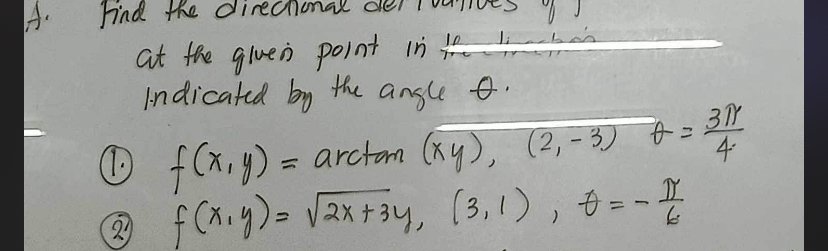 A. Find the directional derivatives of f
at the given point in the direction
Indicated by the angle θ.
① f(x,y) = arctan (xy), (2,-3) θ = 3π/4
② f(x,y) = √2x+3y, (3,1), θ = -π/6